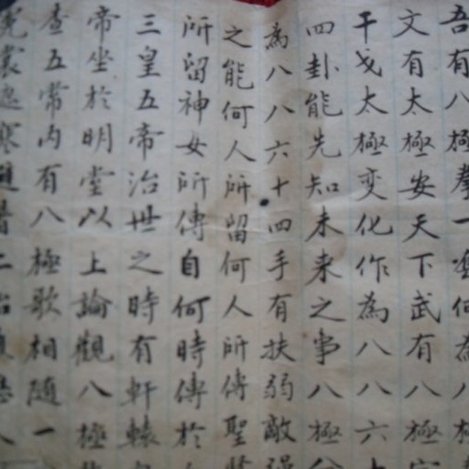 吾有八極拳一
文有太極安天下武有八極
干戈太極变化作為八八六十
四卦能先知未来之事八極
為八八六十四手有扶弱敵强
之能何人所留何人所傳聖
所留神女所傳自何時傳於
三皇五帝治世之時有軒轅
帝坐於明堂以上論觀八極
查五常内有八極歌相随一